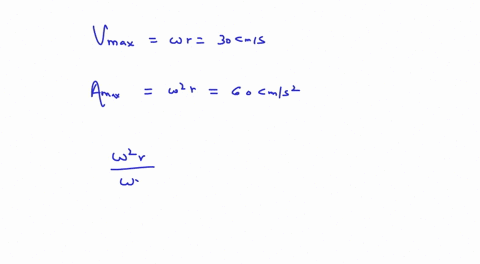 Vmax = ωr = 30 cm/s
Amax = ω²r = 60 cm/s²
ω²r
ω